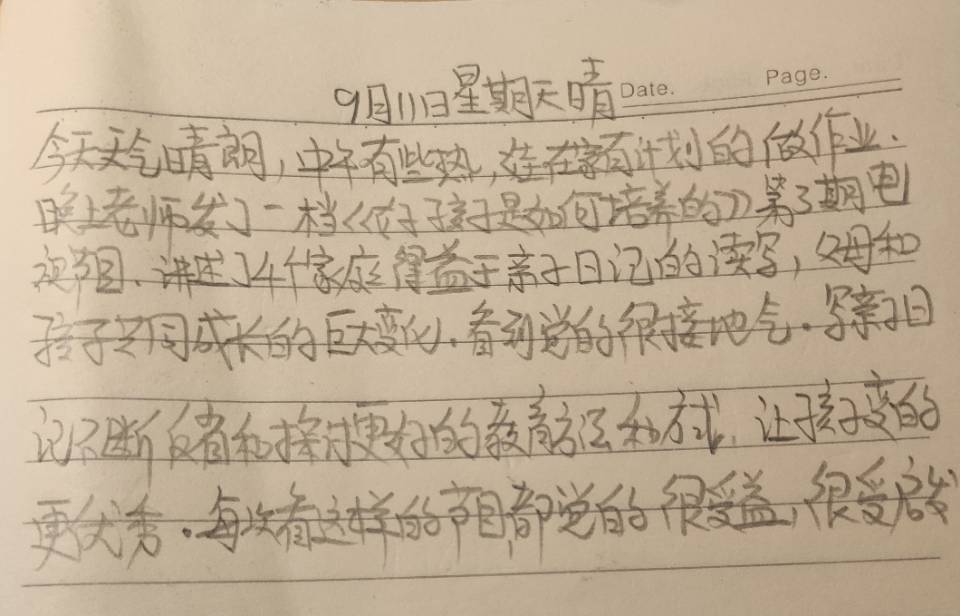 9月11日星期天晴 Date. Page.
今天天气晴朗,中午有些热,娃在家有计划的做作业.
晚上老师发了一档《好孩子是如何培养的》第3期电
视节目.讲述了4个家庭得益于亲子日记的读写,父母和
孩子共同成长的巨大变化.看到觉的很接地气.写亲子日
记不断反省和探讨更好的教育方法和方式.让孩子变的
更优秀.每次看这样的节目,都觉的很受益,很受启发